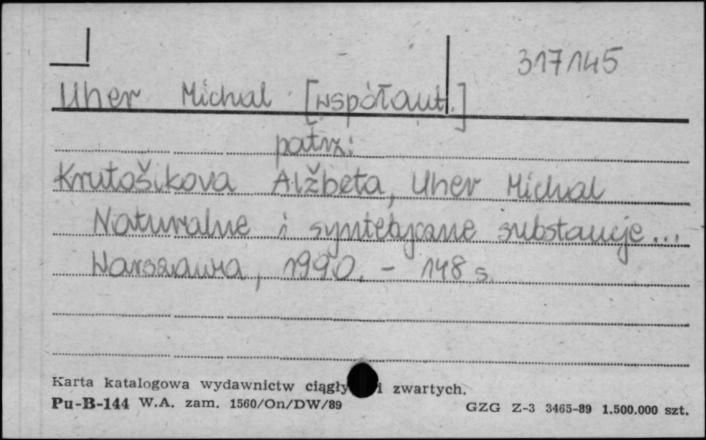 317145
Uher Michal [współaut.]
patrz:
Krutošikova Alžbeta, Uher Michal
Naturalne i syntetyczne substancje...
Warszawa, 1990. - 148 s.
Karta katalogowa wydawnictw ciągły i zwartych.
Pu-B-144 W.A. zam. 1560/On/DW/89 GZG Z-3 3465-89 1.500.000 szt.